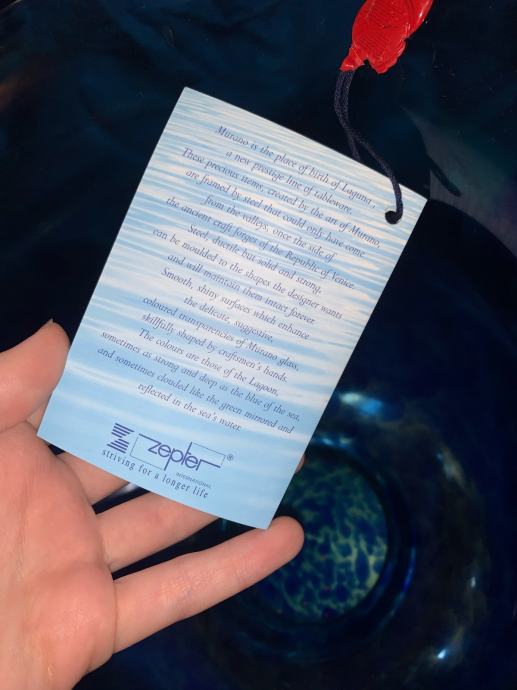 Murano is the place of birth of Laguna,
a new prestige line of tableware.
These precious items, created by the art of Murano,
are framed by steel that could only have come
from the valleys, once the side of
the ancient craft forges of the Republic of Venice.
Steel, ductile but solid and strong,
can be moulded to the shapes the designer wants
and will maintain them intact forever.
Smooth, shiny surfaces which enhance
the delicate, suggestive,
coloured transparencies of Murano glass,
skillfully shaped by craftsmen's hands.
The colours are those of the Lagoon,
sometimes as strong and deep as the blue of the sea,
and sometimes clouded like the green mirrored and
reflected in the sea's water.
zepter®
INTERNATIONAL
striving for a longer life